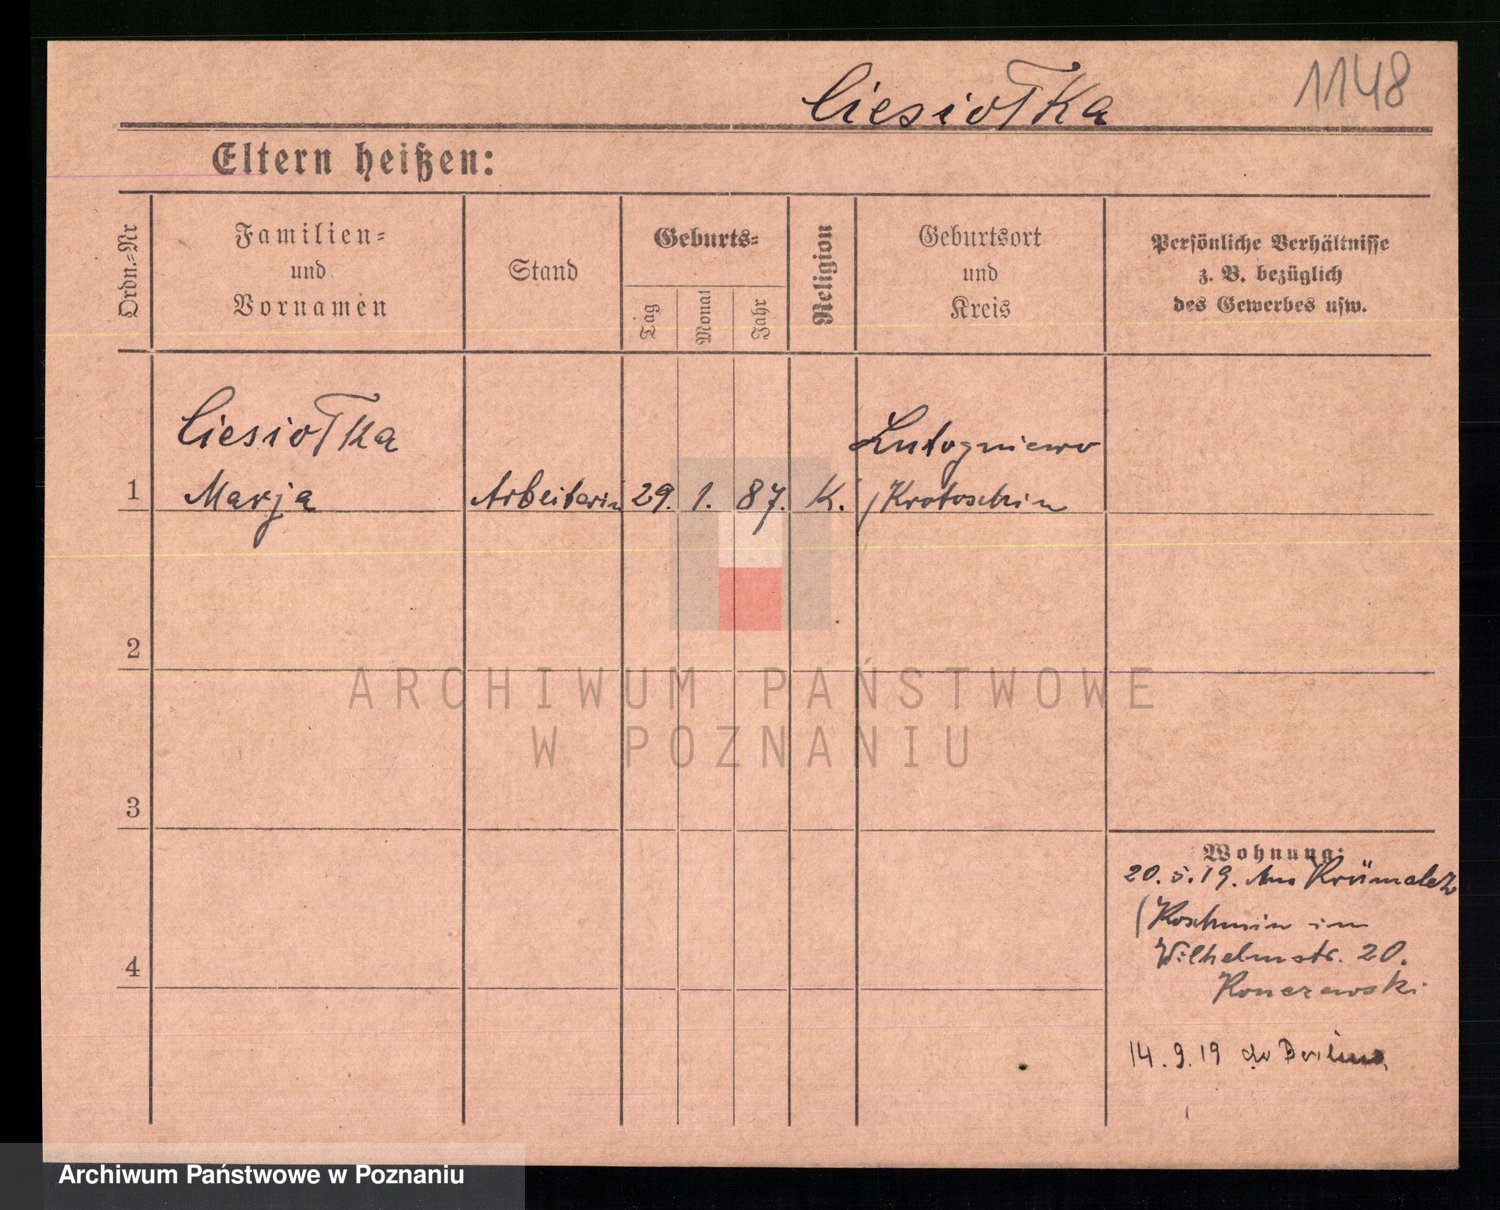 Ciesiołka 1148
Eltern heißen:
Ordn.-Nr
Familien-
und
Vornamen
Stand
Geburts-
Tag
Monat
Jahr
Religion
Geburtsort
und
Kreis
Persönliche Verhältnisse
z. B. bezüglich
des Gewerbes usw.
Ciesiołka
Lutogniewo
1 Marja Arbeiterin 29. 1. 87. K. /Krotoschin
2
ARCHIWUM PAŃSTWOWE
W POZNANIU
3
Wohnung:
20.5.19. Aus
/Koschmin in
Wilhelmstr. 20.
4
14.9.19 do Berlina
Archiwum Państwowe w Poznaniu